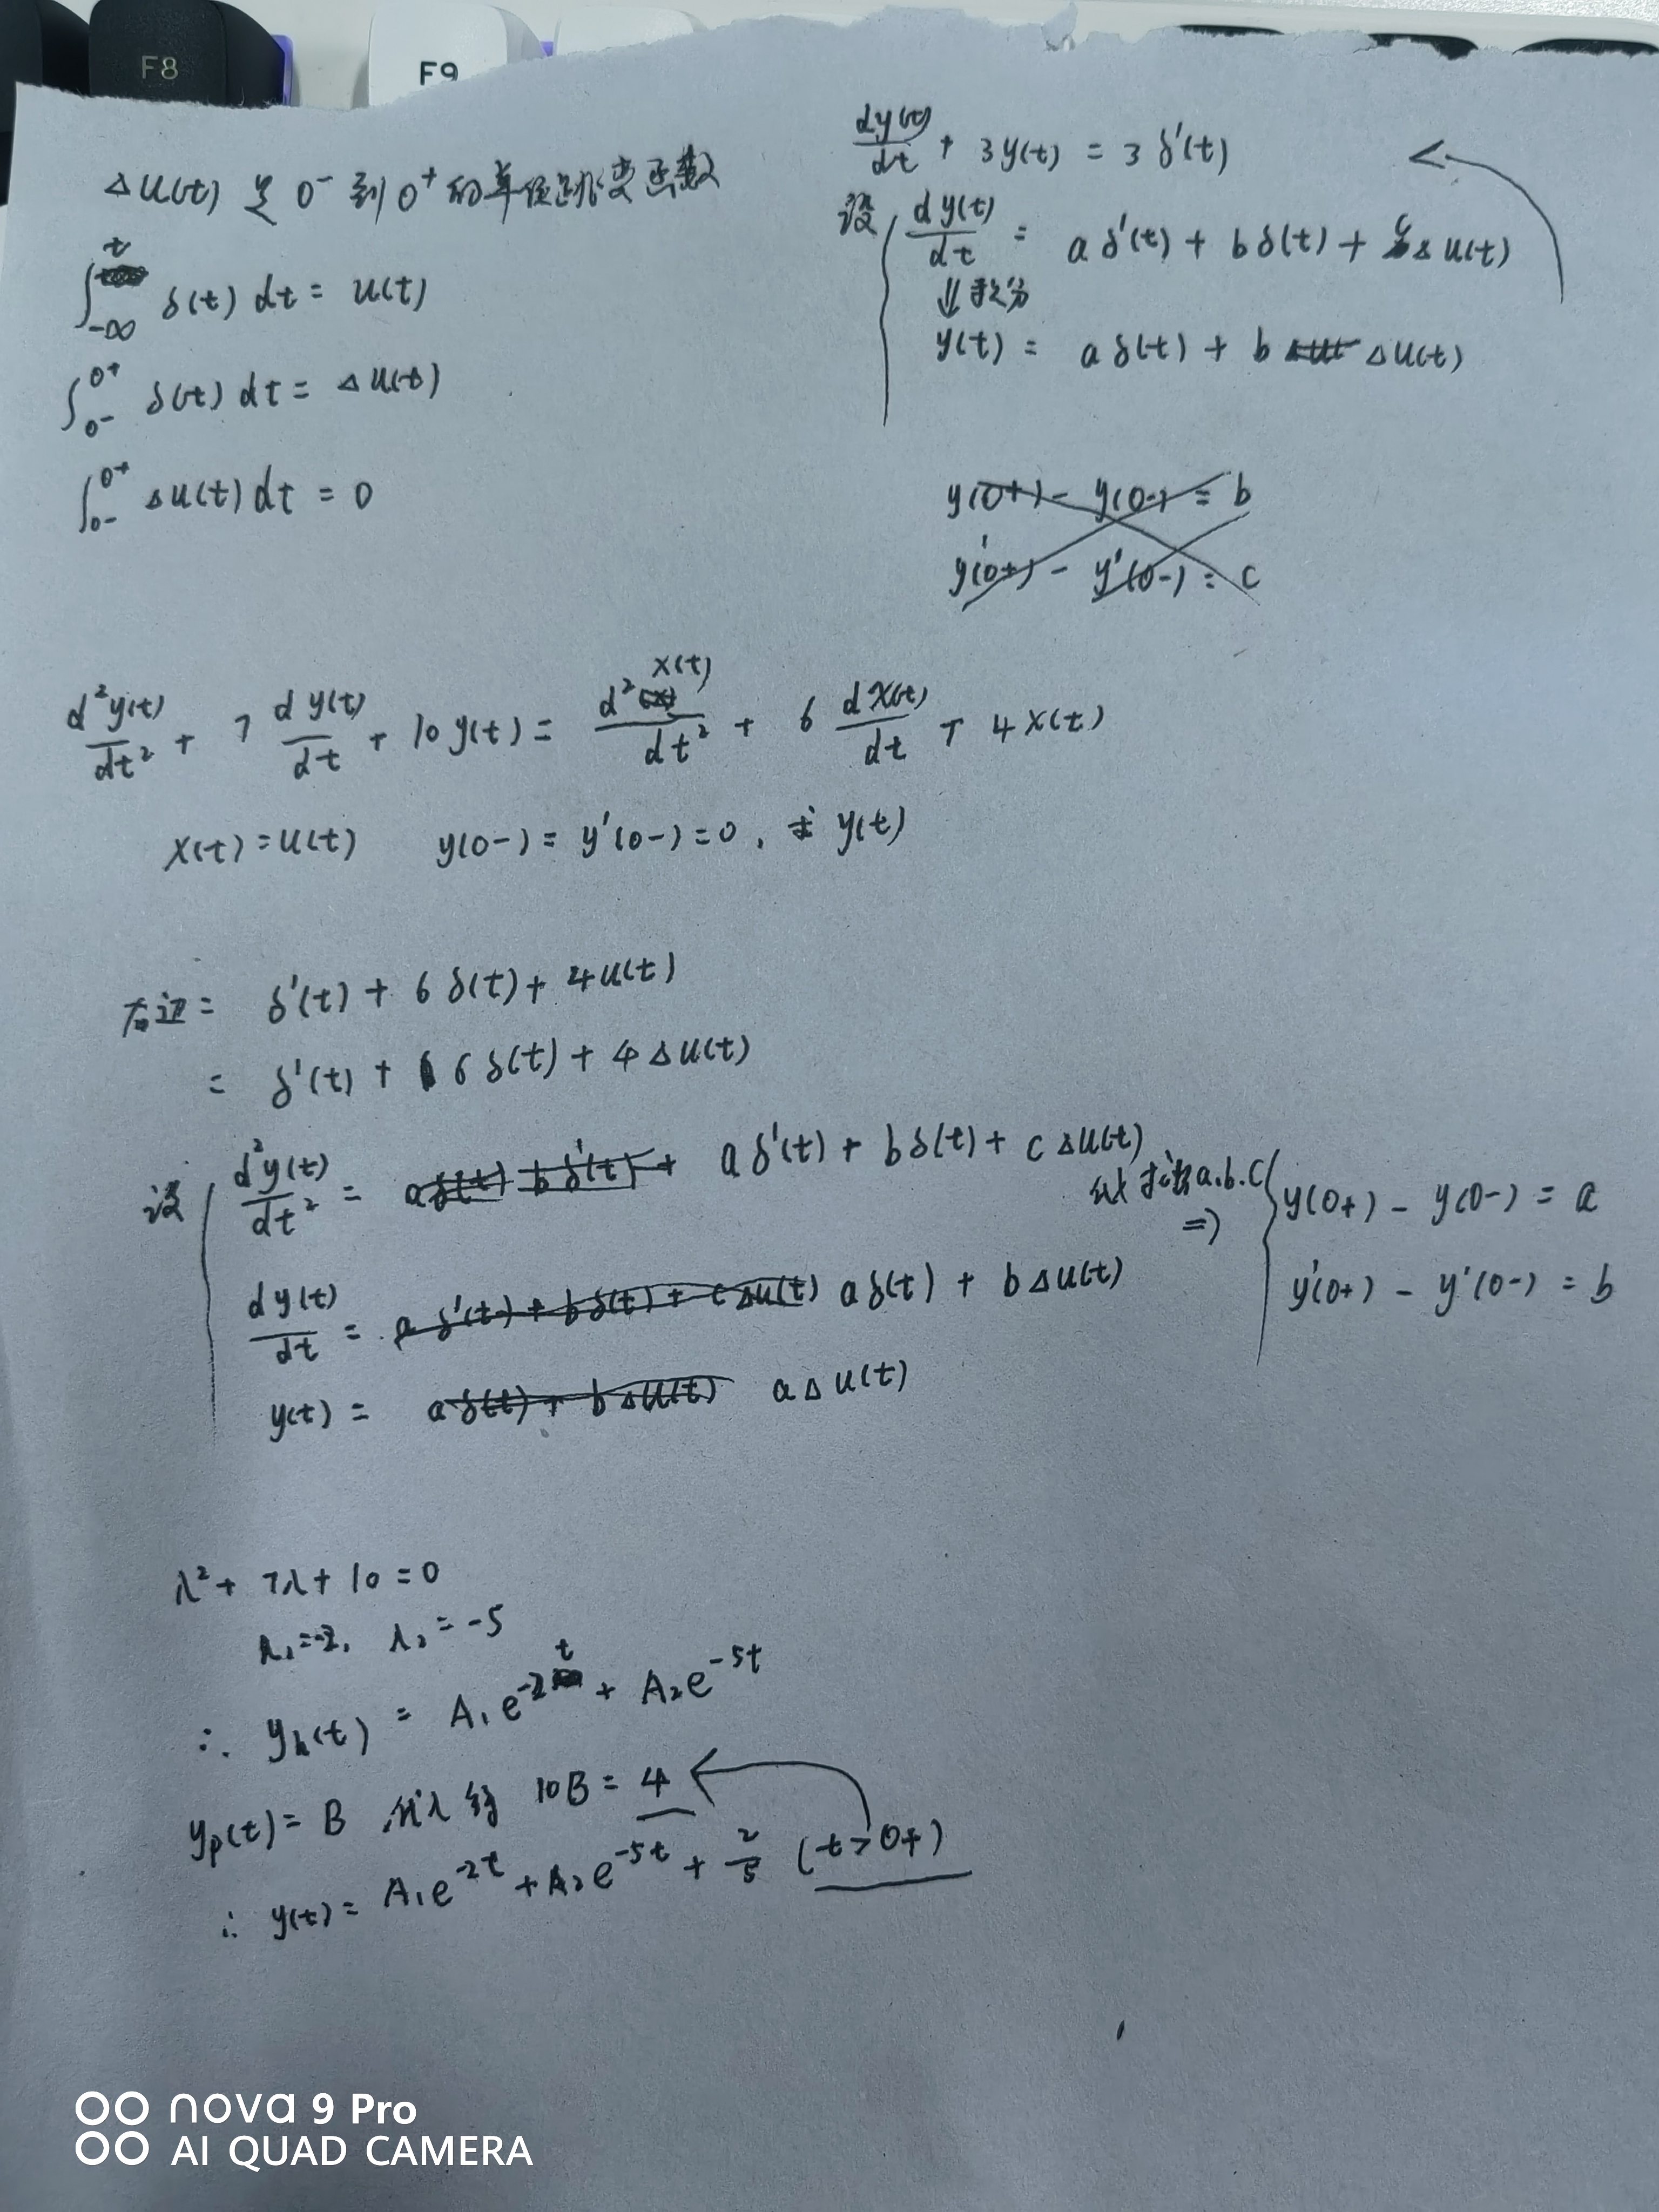 F8
F9
Δu(t) 是 0⁻ 到 0⁺ 的单位跳变函数
∫_{-∞}^{t} δ(t) dt = u(t)
∫_{0-}^{0+} δ(t) dt = Δu(t)
∫_{0-}^{0+} Δu(t) dt = 0
dy(t)/dt + 3y(t) = 3δ'(t)
设 dy(t)/dt = aδ'(t) + bδ(t) + cΔu(t)
⇓ 积分
y(t) = aδ(t) + bΔu(t)
y(0+) - y(0-) = b
y'(0+) - y'(0-) = c
d²y(t)/dt² + 7 dy(t)/dt + 10y(t) = d²x(t)/dt² + 6 dx(t)/dt + 4x(t)
x(t) = u(t) y(0-) = y'(0-) = 0, 求 y(t)
右边 = δ'(t) + 6δ(t) + 4u(t)
= δ'(t) + 6δ(t) + 4Δu(t)
设 d²y(t)/dt² = aδ'(t) + bδ(t) + cΔu(t)
dy(t)/dt = aδ'(t) + bδ(t) + cΔu(t) aδ(t) + bΔu(t)
y(t) = aδ(t) + bΔu(t) aΔu(t)
a.b.c
⇒ y(0+) - y(0-) = a
y'(0+) - y'(0-) = b
λ² + 7λ + 10 = 0
λ₁ = -2, λ₂ = -5
∴ y_h(t) = A₁e^{-2t} + A₂e^{-5t}
y_p(t) = B 代入得 10B = 4
∴ y(t) = A₁e^{-2t} + A₂e^{-5t} + 2/5 (t > 0+)
nova 9 Pro
AI QUAD CAMERA